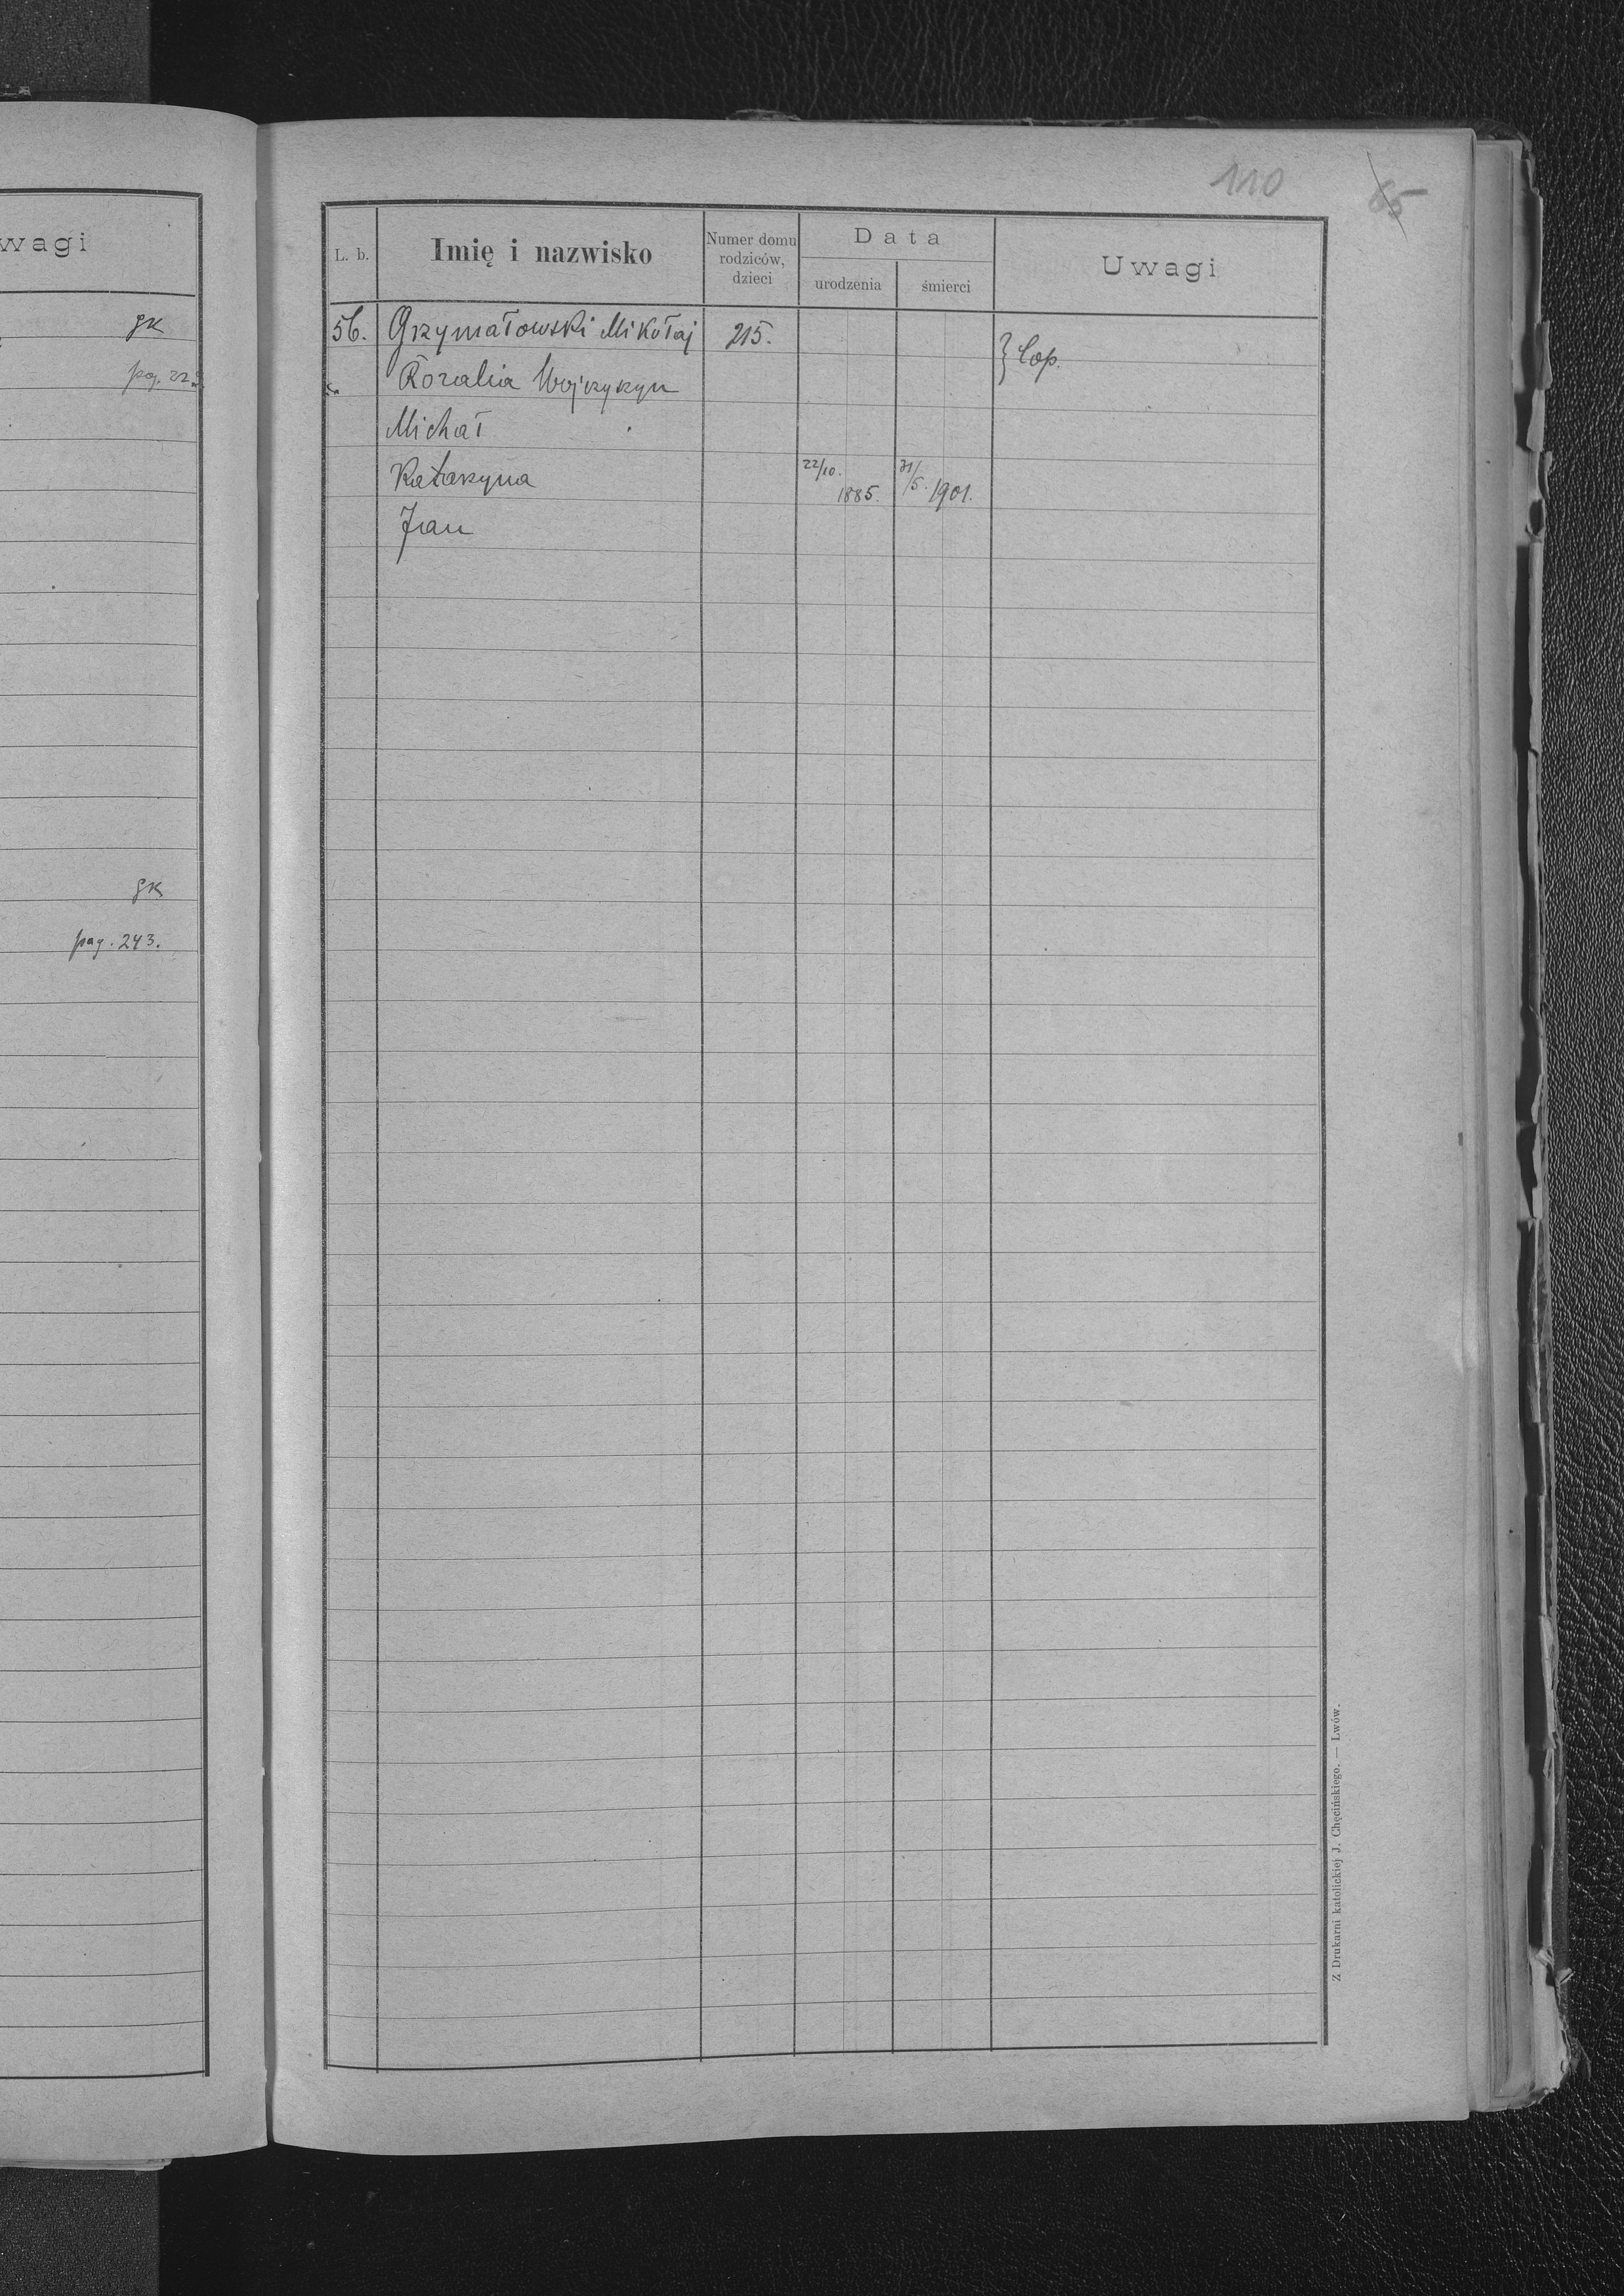 wagi
gk
pag. 22
gk
pag. 243.
110
65
L. b.
Imię i nazwisko
Numer domu rodziców, dzieci
Data
urodzenia
śmierci
Uwagi
56. Grzymałowski Mikołaj 215.
} Cop.
Rozalia Wojczyszyn
Michał
Katarzyna 22/10. 1885. 31/5. 1901.
Jan
Z Drukarni katolickiej J. Chęcińskiego. — Lwów.